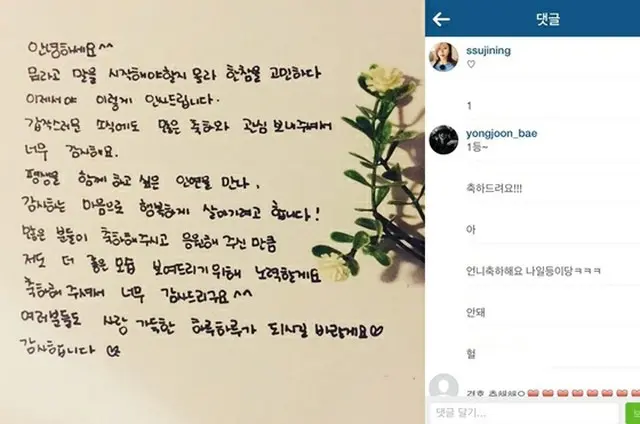 안녕하세요^^
뭐라고 말을 시작해야할지 몰라 한참을 고민하다
이제서야 이렇게 인사드립니다.
갑작스러운 소식에도 많은 축하와 관심 보내주셔서
너무 감사해요.
평생을 함께 하고 싶은 인연을 만나,
감사하는 마음으로 행복하게 살아가려고 합니다!
많은 분들이 축하해주시고 응원해 주신 만큼
저도 더 좋은 모습 보여드리기 위해 노력할게요
축하해 주셔서 너무 감사드리구요^^
여러분들도 사랑 가득한 하루하루가 되시길 바랄게요♡
감사합니다 ♡
댓글
ssujining
♡
1
yongjoon_bae
1등~
축하드려요!!!
아
언니축하해요 나일등이당ㅋㅋㅋ
안돼
헐
댓글 달기...